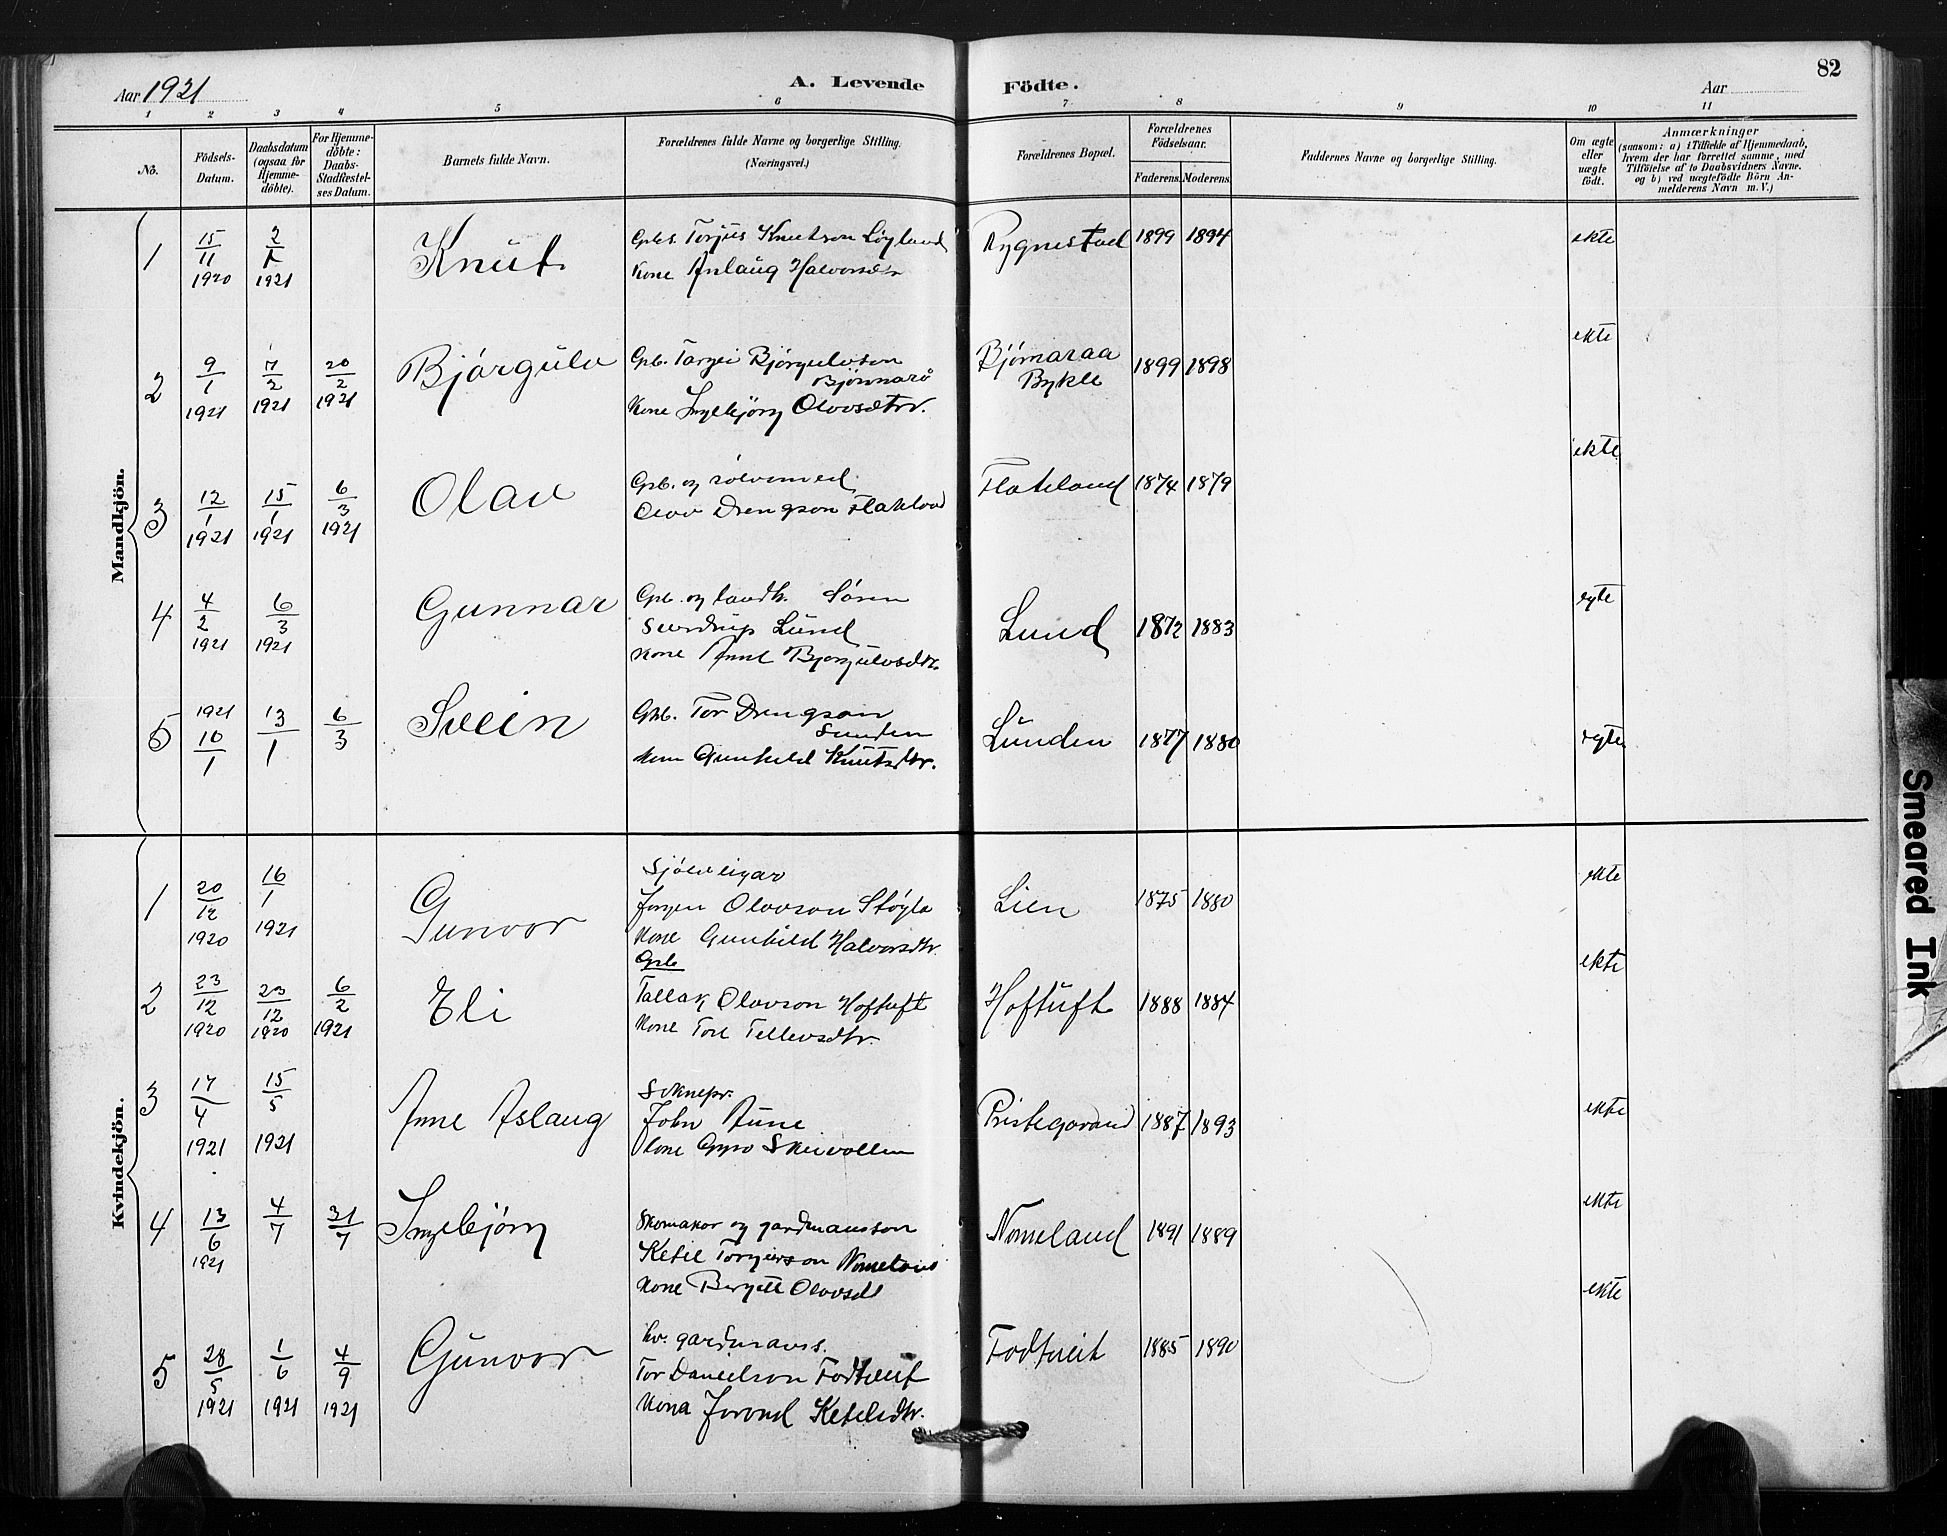 Aar 1921
A. Levende Födte.
Aar
82
1 2 3 4 5 6 7 8 9 10 11
No.
Födsels-Datum.
Daabsdatum (ogsaa for Hjemme-döbte).
For Hjemme-döbte: Daabs-Stadfæstel-ses Datum.
Barnets fulde Navn.
Forældrenes fulde Navne og borgerlige Stilling. (Næringsvei.)
Forældrenes Bopæl.
Forældrenes Födselsaar.
Faderens. Moderens.
Faddernes Navne og borgerlige Stilling.
Om ægte eller uægte födt.
Anmærkninger
(saasom: a) i Tilfælde af Hjemmedaab, hvem der har forrettet samme, med Tilföielse af to Daabsvidners Navne. og b) ved uægtefödte Börn Anmelderens Navn m. V.)
Mandkjön.
1 15/11 1920 2/1 1921 Knut
Torjus Knutson Løyland
kone Aslaug Halvorsdtr
Rygnestad 1899 1894 ekte
2 9/1 1921 7/2 1921 20/2 1921 Bjørgulv
Grb. Targei Bjørgulvson
Bjørnarå
kone Ingebjörg Olavsdtr.
Bjørnaraa
Bykle
1899 1898 ekte
3 12/1 1921 15/1 1921 6/3 1921 Olav
Grb. og sølvsmed
Olav Drengson Flateland
Flateland 1874 1879 ekte
4 4/2 1921 6/3 1921 Gunnar
Grb. og landh. Søren
Sverdrup Lund
kone Anne Bjorgulvsdtr.
Lund 1872 1883 egte
5 1921 10/1 13/1 6/3 Svein
Grb. Tor Drengson
Lunden
kone Gunhild Knutsdtr.
Lunden 1877 1880 egte
Kvindekjön.
1 20/12 1920 16/1 1921 Gunvor
Sjølveigar
Jorgen Olavson Støylo
kone Gunhild Halvorsdtr.
Lien 1875 1880 ekte
2 23/12 1920 23/12 1920 6/2 1921 Eli
Grb
Tallak Olavson Hoftuft
kone Tone Tellevsdtr.
Hoftuft 1888 1884 ekte
3 17/4 1921 15/5 1921 Anne Aslaug
Soknepr.
John Aune
kone Gyro Skeivollen
Prestegarand 1887 1893 ekte
4 13/6 1921 4/7 31/7 Ingebjörg
Skomakor og gardmansson
Ketil Torgeirson Nomeland
kone Bergitt Olavsdt
Nomeland 1891 1889 ekte
5 28/5 1921 1/6 1921 4/9 1921 Gunvor
hv. gardmanns.
Tor Danielson Fodtveit
kona Jorond Ketilsdtr.
Fodtveit 1885 1890 ekte
Smeared Ink